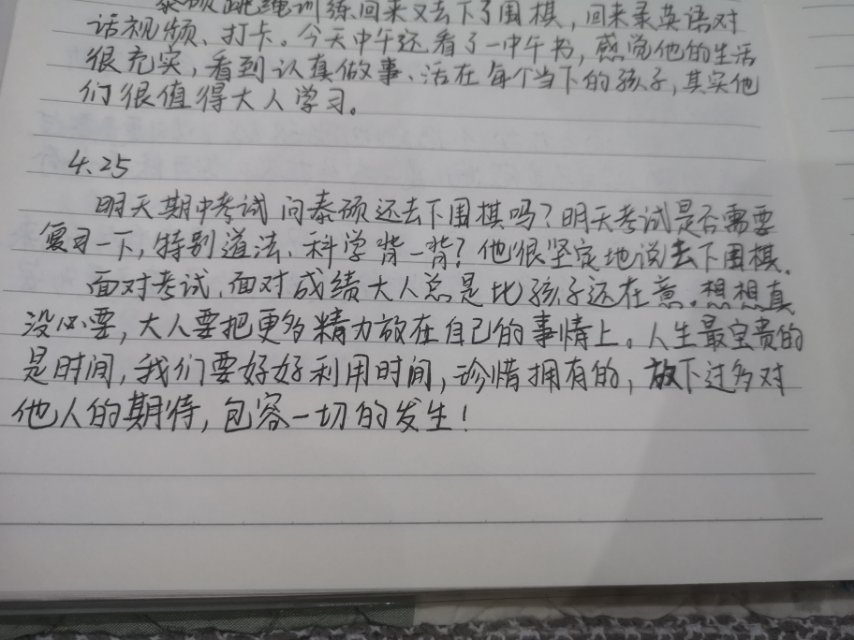 泰硕跳绳训练回来又去下了围棋,回来录英语对
话视频、打卡。今天中午还看了一中午书,感觉他的生活
很充实,看到认真做事、活在每个当下的孩子,其实他
们很值得大人学习。
4.25
明天期中考试问泰硕还去下围棋吗?明天考试是否需要
复习一下,特别道法、科学背一背?他很坚定地说去下围棋.
面对考试,面对成绩大人总是比孩子还在意。想想真
没必要,大人要把更多精力放在自己的事情上。人生最宝贵的
是时间,我们要好好利用时间,珍惜拥有的,放下过多对
他人的期待,包容一切的发生!